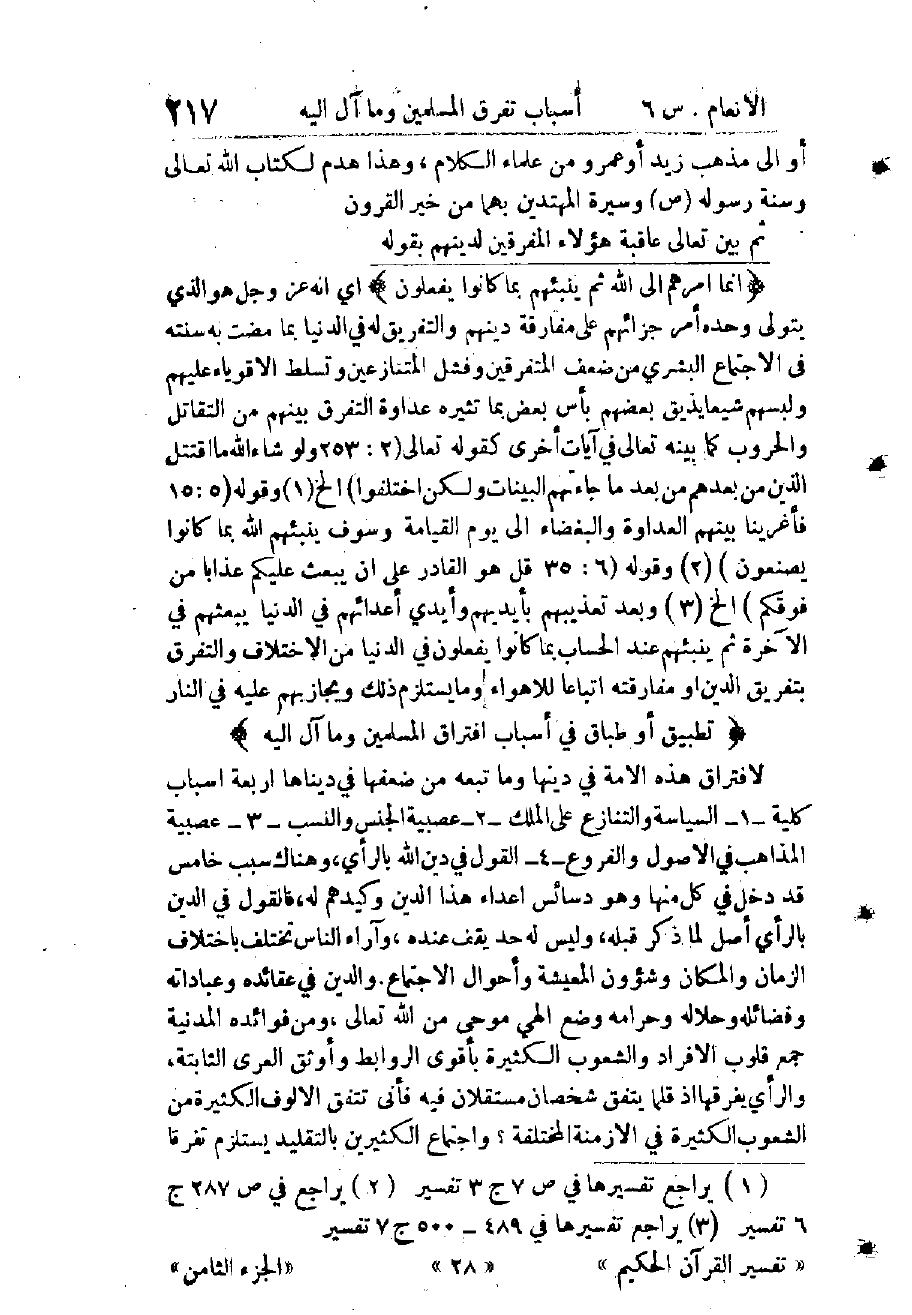 الأنعام . س ٦ أسباب تفرق المسلمين وما آل اليه ٢١٧
أو الى مذهب زيد أوعمرو من علماء الكلام ، وهذا هدم لكتاب الله تعالى
وسنة رسوله (ص) وسيرة المهتدين بهما من خير القرون
ثم بين تعالى عاقبة هؤلاء المفرقين لدينهم بقوله
﴿ انما امرهم الى الله ثم ينبئهم بما كانوا يفعلون ﴾ اي انه عز وجل هو الذي
يتولى وحده أمر جزائهم على مفارقة دينهم والتفريق له في الدنيا بما مضت به سنته
فى الاجتماع البشري من ضعف المتفرقين وفشل المتنازعين وتسلط الاقوياء عليهم
ولبسهم شيعا يذيق بعضهم بأس بعض بما تثيره عداوة التفرق بينهم من التقاتل
والحروب كما بينه تعالى في آيات أخرى كقوله تعالى (٢ : ٢٥٣ ولو شاء الله ما اقتتل
الذين من بعدهم من بعد ما جاءتهم البينات ولكن اختلفوا) الخ (١) وقوله (٥ : ١٥
فأغرينا بينهم العداوة والبغضاء الى يوم القيامة وسوف ينبئهم الله بما كانوا
يصنعون ) (٢) وقوله (٦ : ٣٥ قل هو القادر على ان يبعث عليكم عذابا من
فوقكم ) الخ (٣ ) وبعد تعذيبهم بأيديهم وأيدي أعدائهم في الدنيا يبعثهم في
الآخرة ثم ينبئهم عند الحساب بما كانوا يفعلون في الدنيا من الاختلاف والتفرق
بتفريق الدين او مفارقته اتباعا للاهواء وما يستلزم ذلك ويجازيهم عليه في النار
﴿ تطبيق أو طباق في أسباب افتراق المسلمين وما آل اليه ﴾
لافتراق هذه الامة في دينها وما تبعه من ضعفها في دنياها اربعة اسباب
كلية -١- السياسة والتنازع على الملك -٢- عصبية الجنس والنسب -٣- عصبية
المذاهب في الاصول والفروع -٤- القول في دين الله بالرأي ، وهناك سبب خامس
قد دخل في كل منها وهو دسائس اعداء هذا الدين وكيدهم له ، فالقول في الدين
بالرأي أصل لما ذكر قبله ، وليس له حد يقف عنده ، وآراء الناس تختلف باختلاف
الزمان والمكان وشؤون المعيشة وأحوال الاجتماع . والدين في عقائده وعباداته
وفضائله وحلاله وحرامه وضع الهي موحى من الله تعالى ، ومن فوائده المدنية
جمع قلوب الافراد والشعوب الكثيرة بأقوى الروابط وأوثق العرى الثابتة ،
والرأي يفرقها اذ قلما يتفق شخصان مستقلان فيه فأنى تتفق الالوف الكثيرة من
الشعوب الكثيرة في الازمنة المختلفة ؟ واجتماع الكثيرين بالتقليد يستلزم تفرقا
(١) يراجع تفسيرها في ص ٧ ج ٣ تفسير (٢) يراجع في ص ٢٨٧ ج
٦ تفسير (٣) يراجع تفسيرها في ٤٨٩ – ٥٠٠ ج ٧ تفسير
« تفسير القرآن الحكيم » « ٢٨ » «الجزء الثامن»